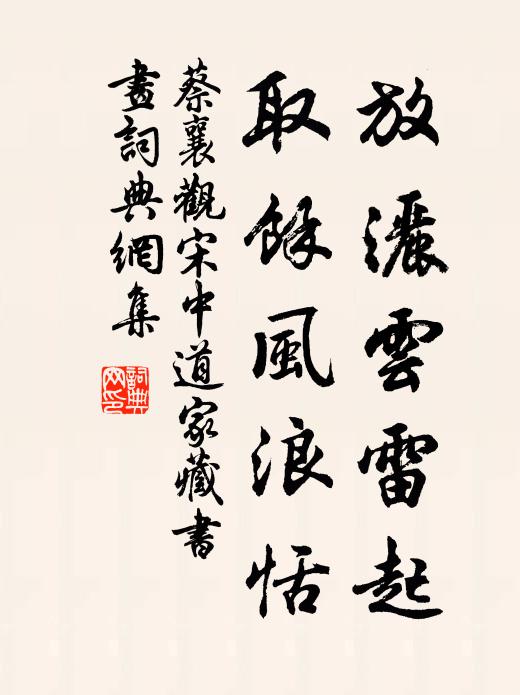 放灑雲雷起
取餘風浪恬
蔡襄觀宋中道家藏書
畫詞典網集
詞典網印